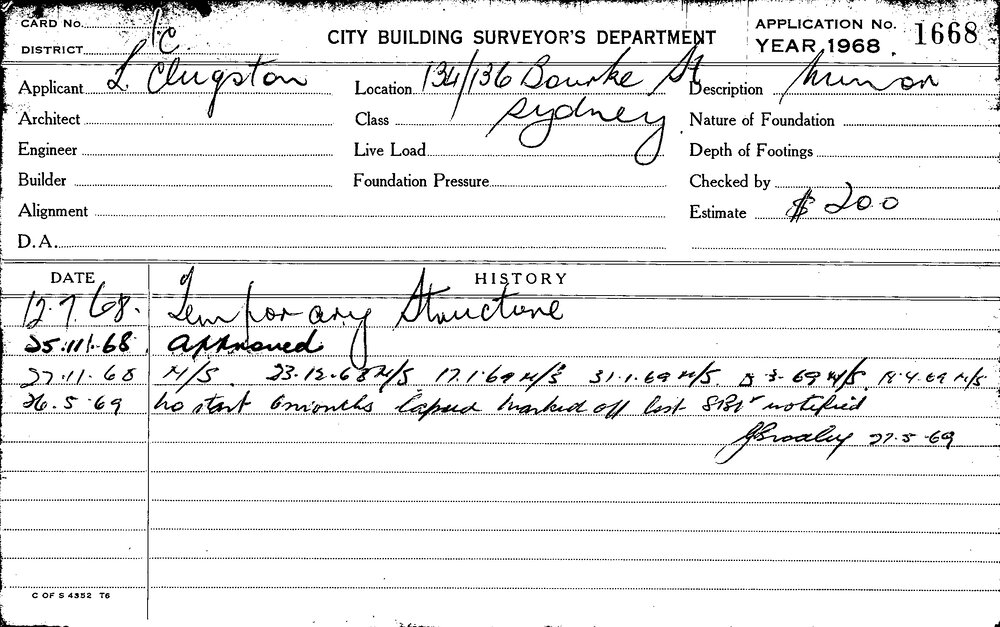 CARD No. 1c
DISTRICT
CITY BUILDING SURVEYOR'S DEPARTMENT
APPLICATION No. 1668
YEAR 1968.
Applicant L Clugston
Location 134/136 Bourke St
Sydney
Description
Architect
Class
Nature of Foundation
Engineer
Live Load
Depth of Footings
Builder
Foundation Pressure
Checked by
Alignment
Estimate $200
D.A.
DATE
HISTORY
12.7.68. Temporary Structure
25.11.68. Approved
27.11.68 N/S. 23.12.68 N/S 17.1.69 N/S 31.1.69 N/S. 3.69 N/S. 18.4.69 N/S
26.5.69 No start 6 months lapsed marked off list notified
27.5.69
C OF S 4352 T6